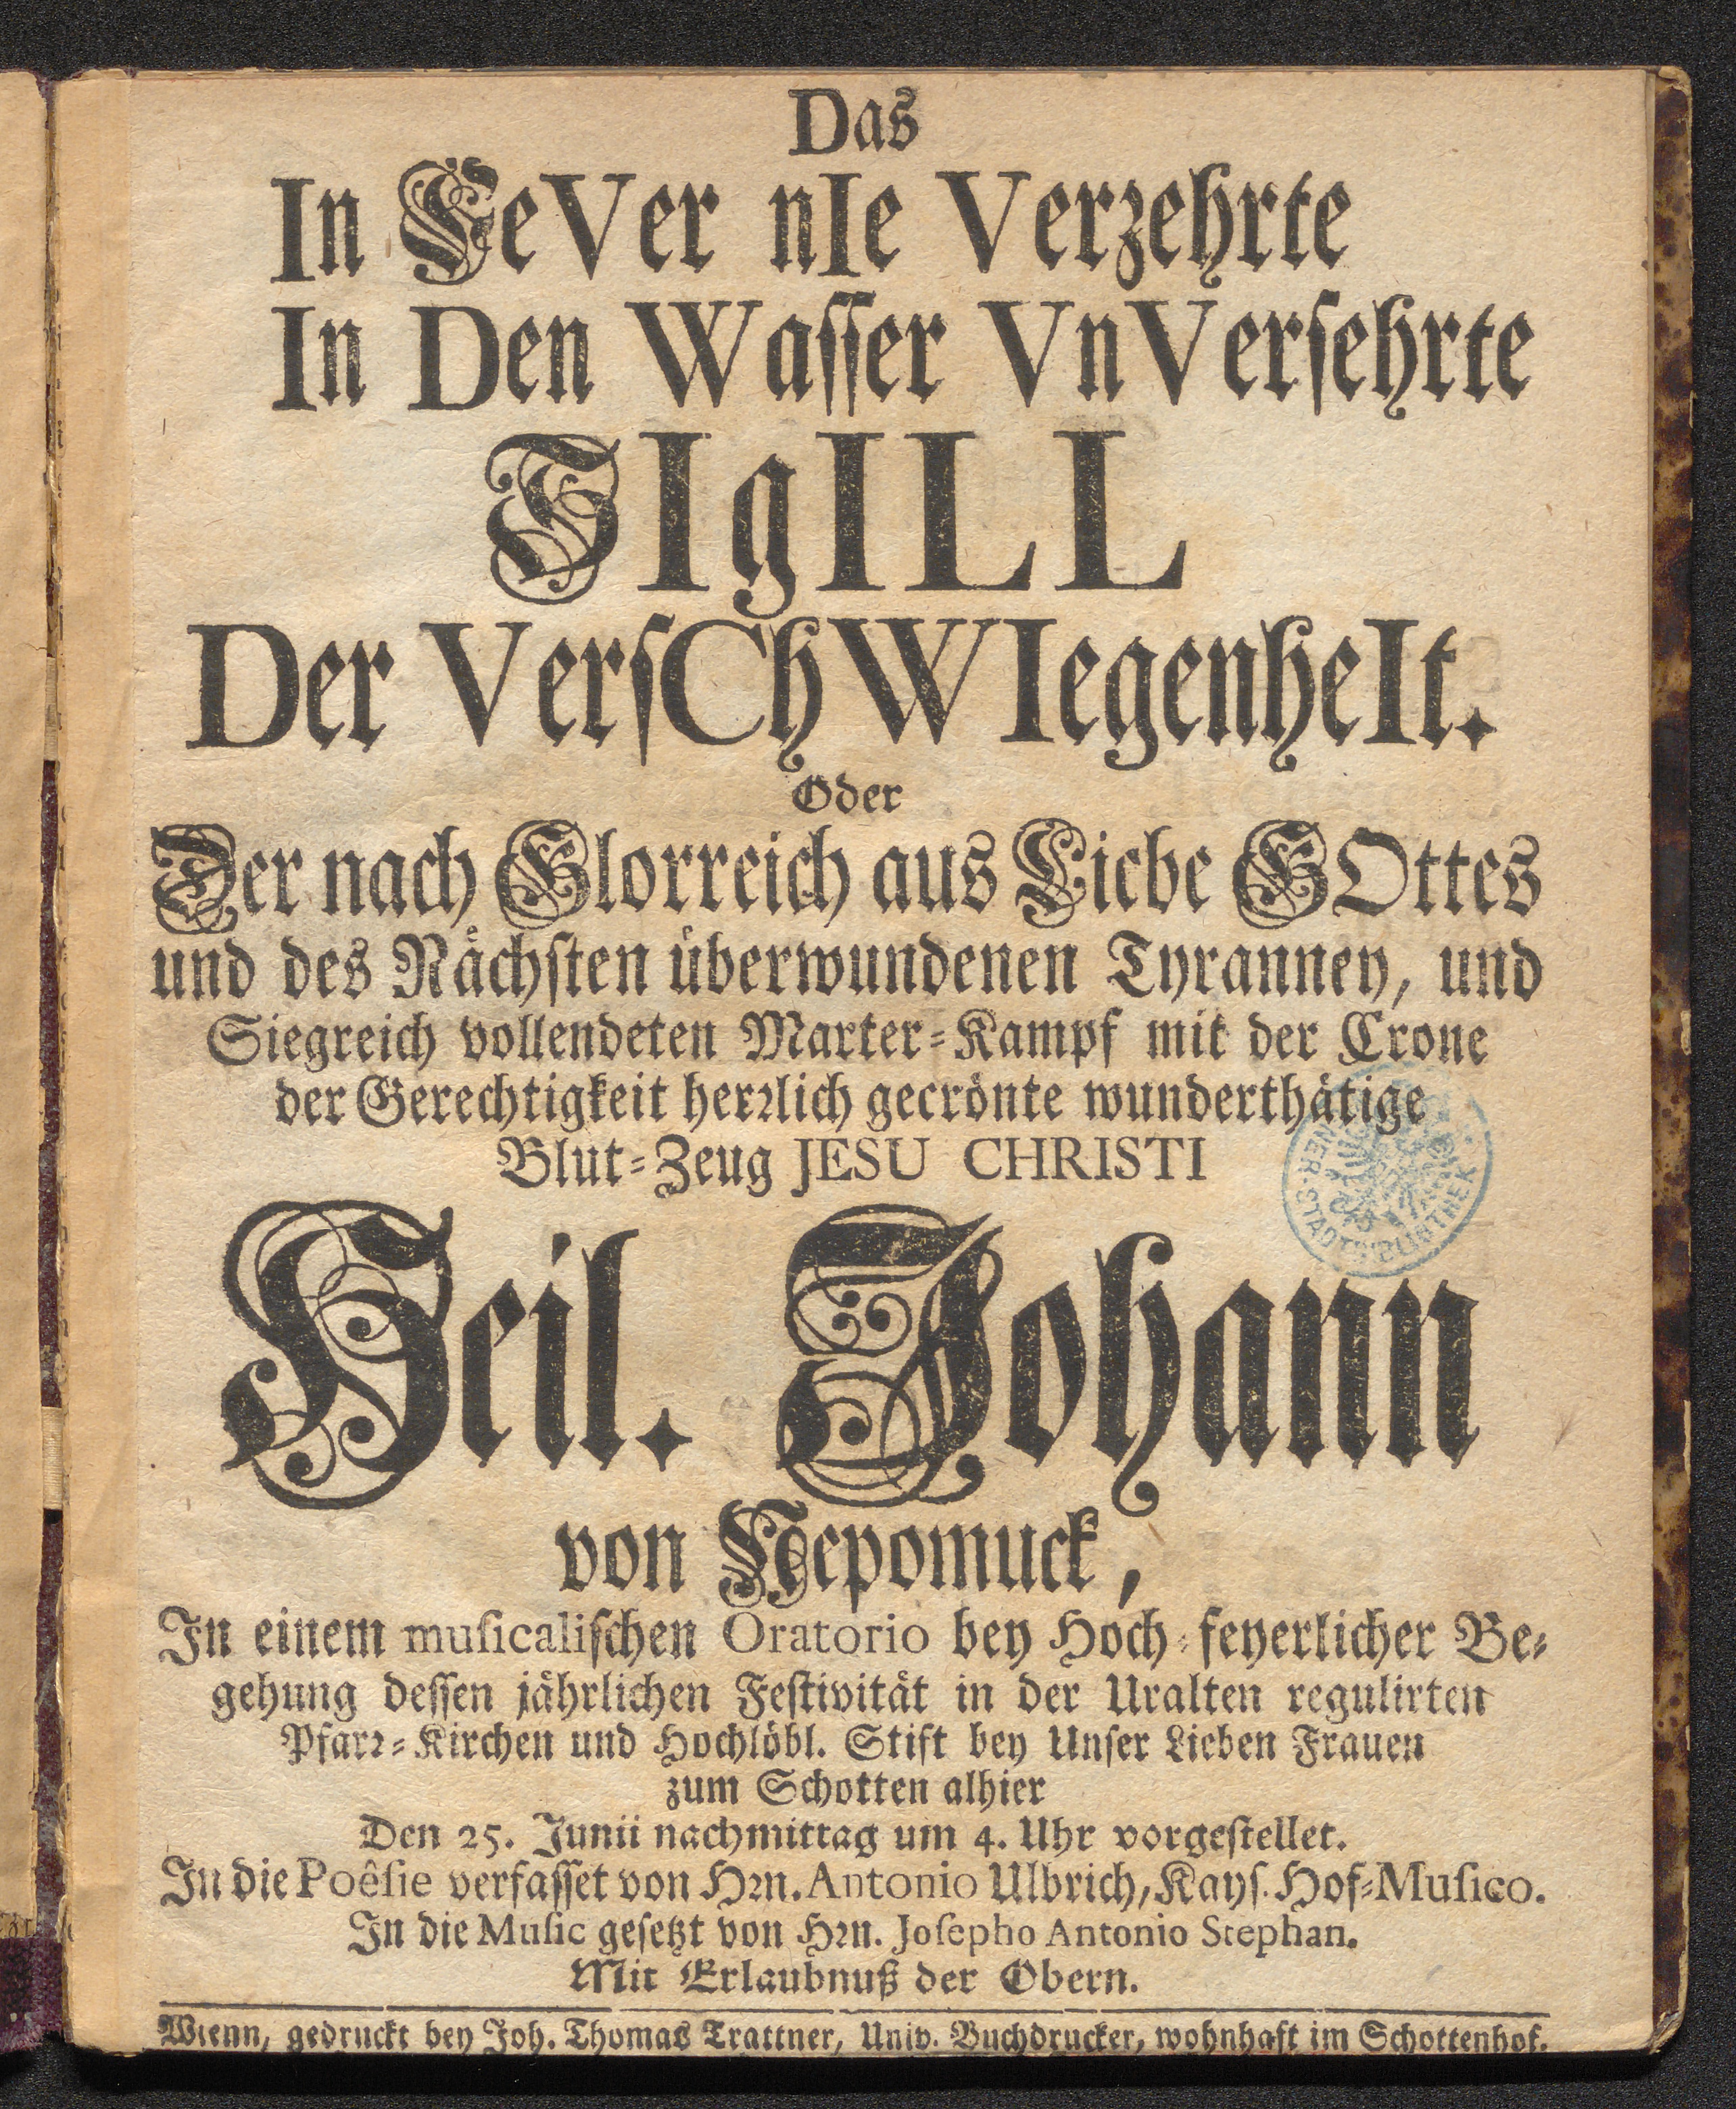 Das
In FeVer nIe Verzehrte
In Den Waſſer VnVerſehrte
SIgILL
Der VerſChWIegenheIt.
Oder
Der nach Glorreich aus Liebe GOttes
und des Nächſten überwundenen Tyranney, und
Siegreich vollendeten Marter-Kampf mit der Crone
der Gerechtigkeit herꝛlich gecrönte wunderthätige
Blut-Zeug JESU CHRISTI
Heil. Johann
von Nepomuck,
In einem muſicaliſchen Oratorio bey Hoch-feyerlicher Be-
gehung deſſen jährlichen Feſtivität in der Uralten regulirten
Pfarꝛ-Kirchen und Hochlöbl. Stift bey Unſer Lieben Frauen
zum Schotten alhier
Den 25. Junii nachmittag um 4. Uhr vorgeſtellet.
In die Poêſie verfaſſet von Hꝛn. Antonio Ulbrich, Kayſ. Hof-Muſico.
In die Muſic geſetzt von Hꝛn. Joſepho Antonio Stephan.
Mit Erlaubnuß der Obern.
Wienn, gedruckt bey Joh. Thomas Trattner, Univ. Buchdrucker, wohnhaft im Schottenhof.